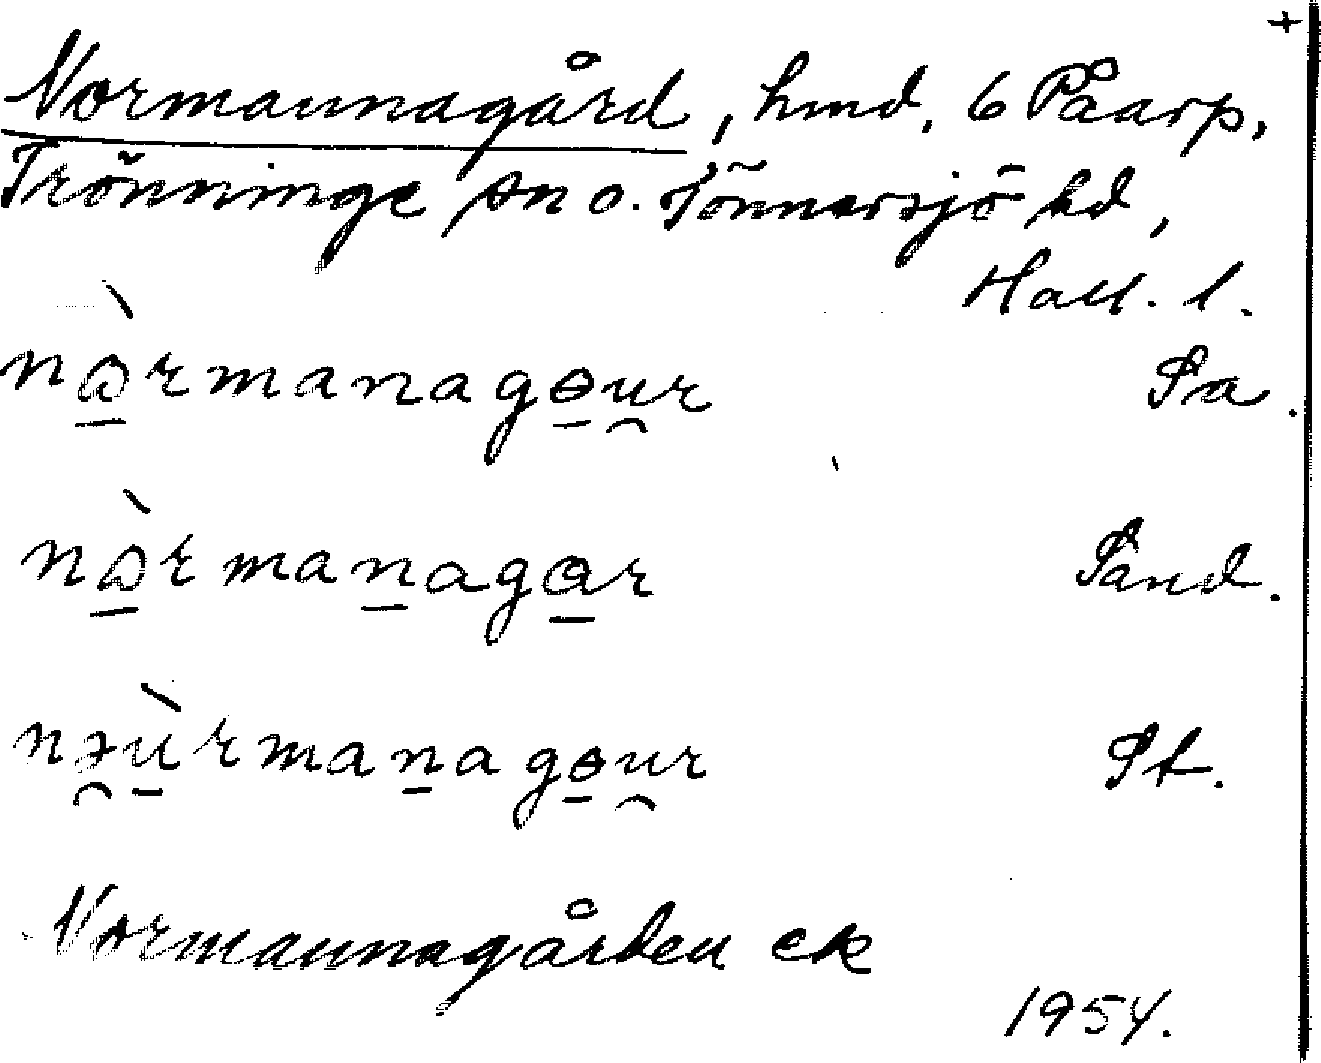 +
Normannagård, hmd. 6 Påarp,
Trönninge sn o. Tönnersjö hd,
Hall. l.
nɷ̠̀rmanagɵ̠u̯r Pa.
nɷ̠̀rman̠agɑ̠r Pand.
nə̯ù̠rman̠agɵ̠u̯r Pt.
Normannagården ek
1954.